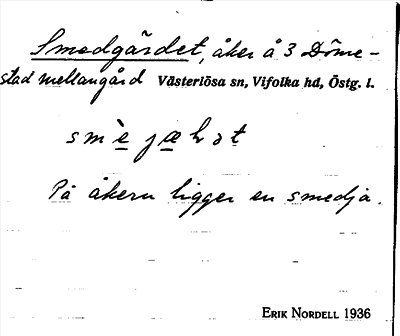 Smedgärdet, åker å 3 Döme-
stad mellangård Västerlösa sn, Vifolka hd, Östg. l.
På åkern ligger en smedja.
ERIK NORDELL 1936